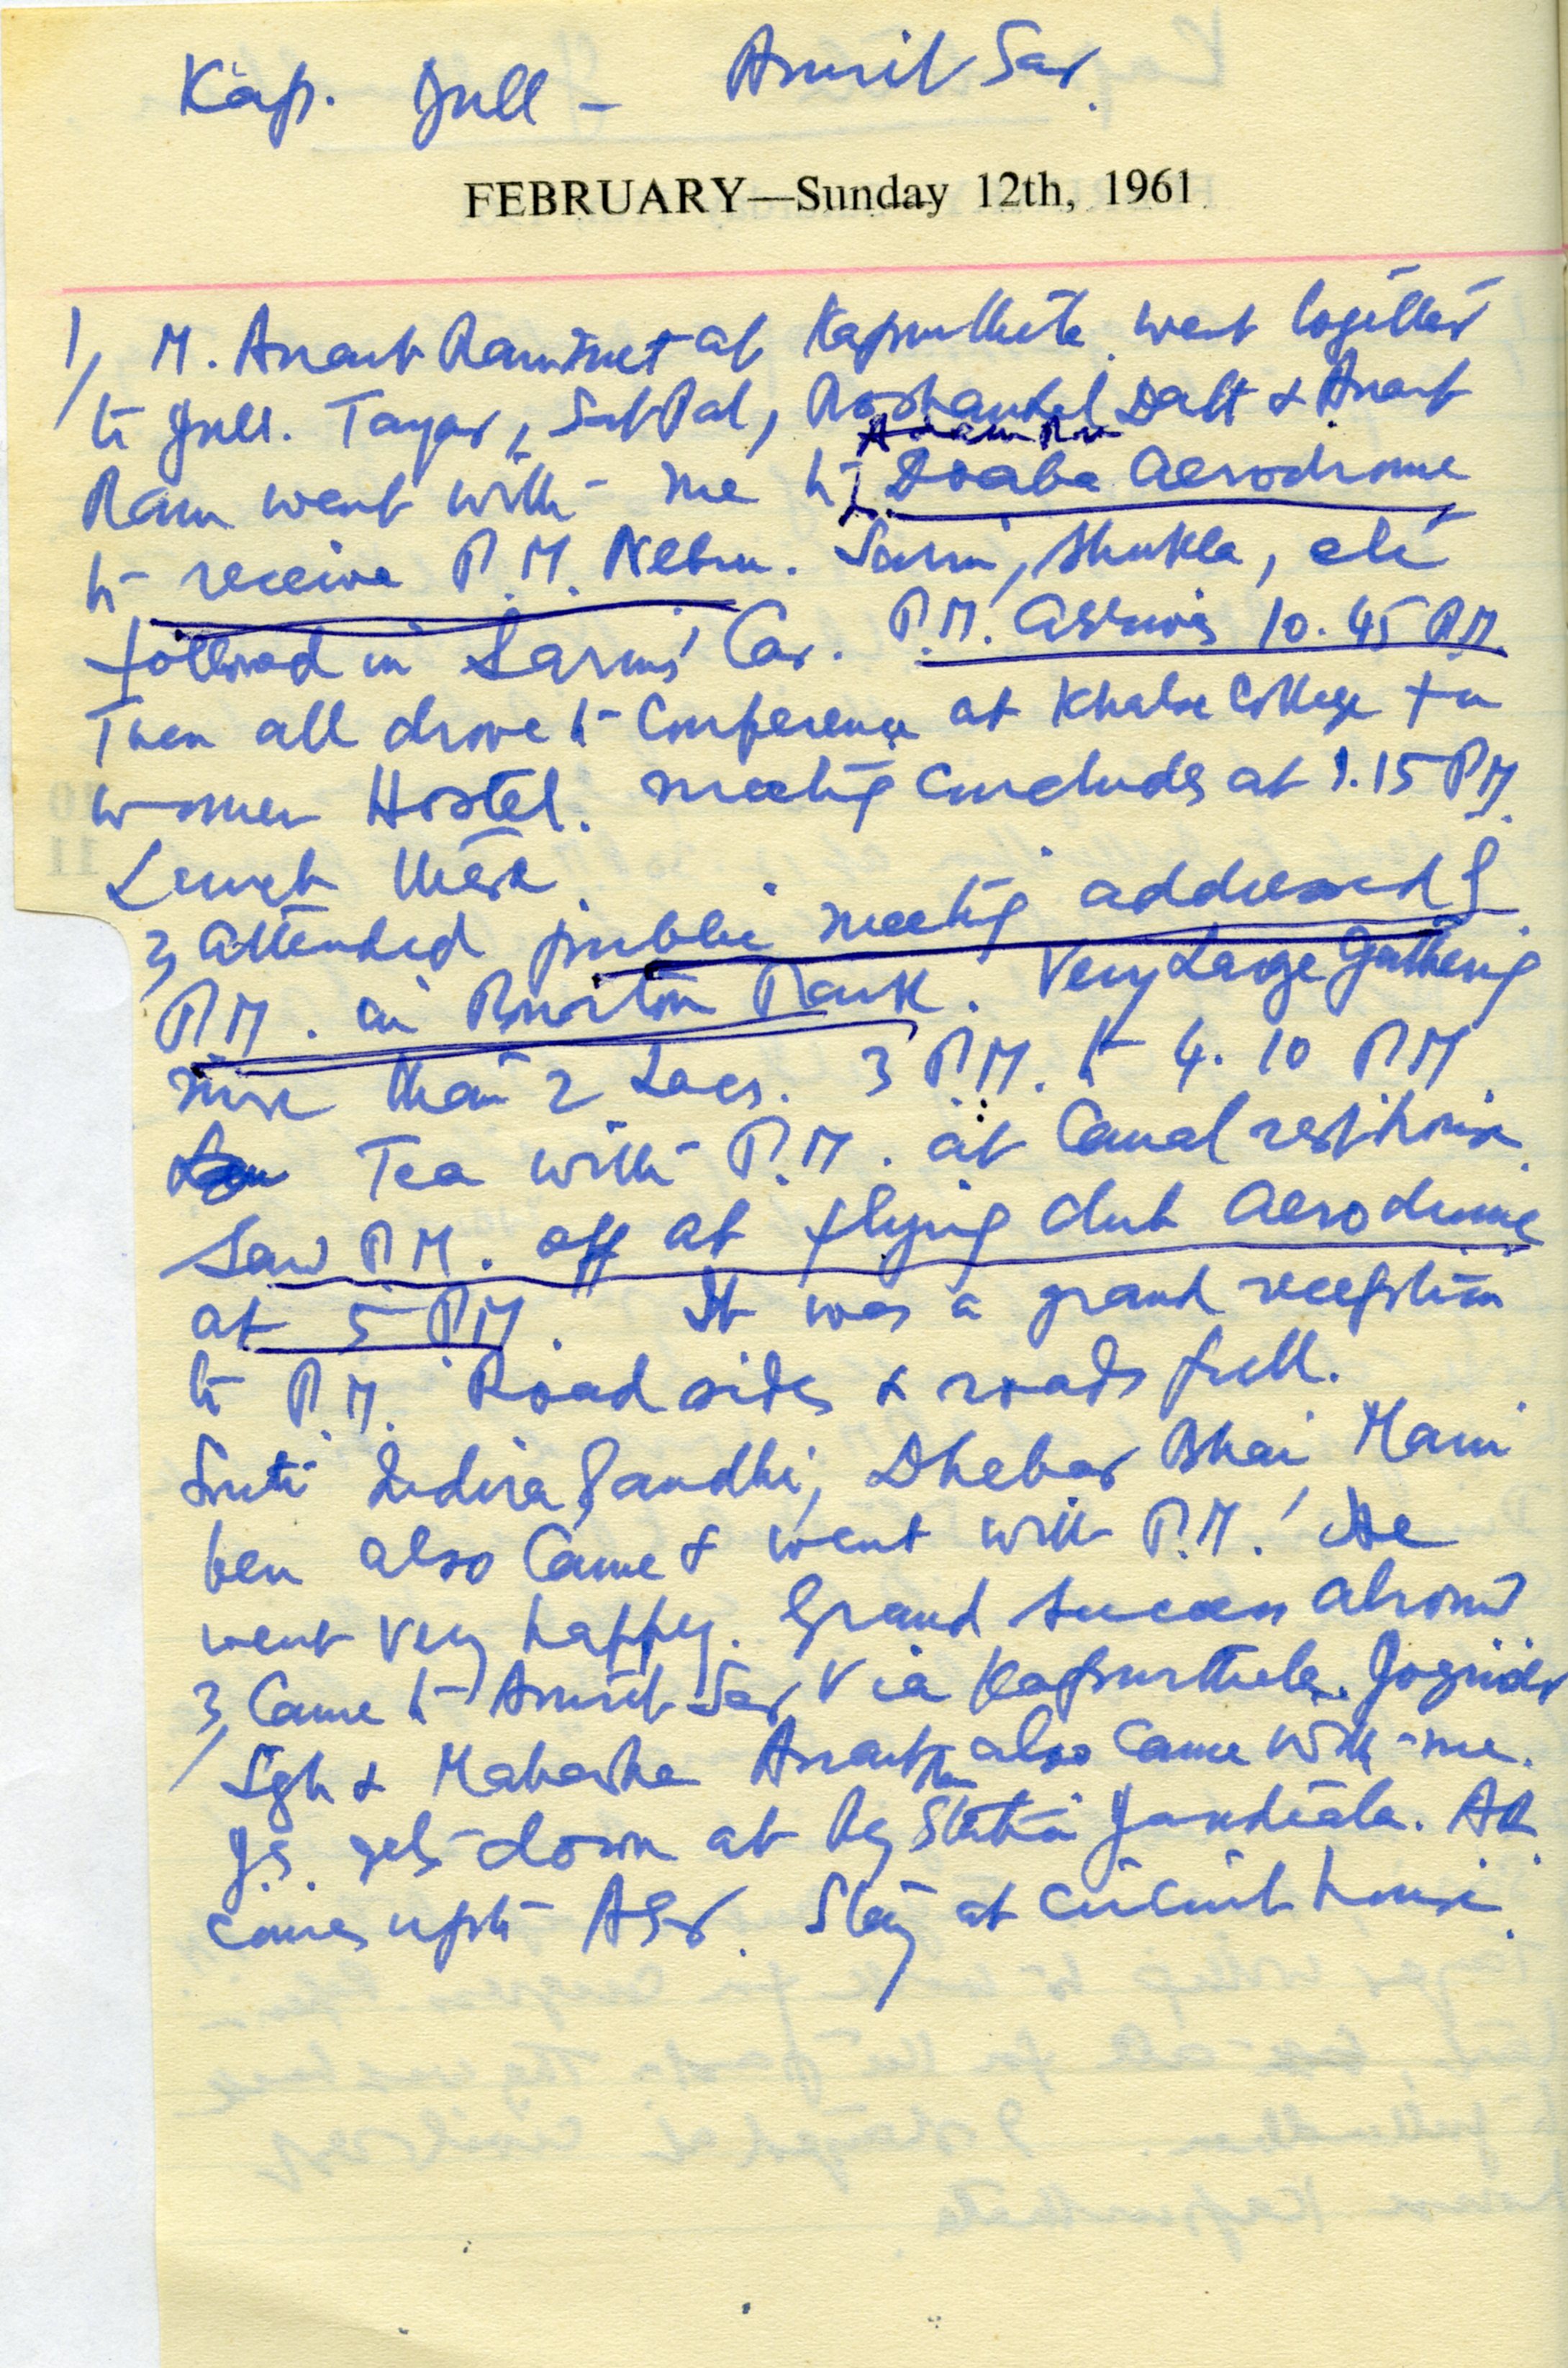 Kap. Jull - Amrit Sar.
FEBRUARY—Sunday 12th, 1961
1/ M. Anant Ram met at Kapurthala. went together
to Jull. Tayar, Sat Pal, Roshanlal, Datt & Anant
Adampur
Ram went with me to Doaba Aerodrome
to receive P.M. Nehru. Sarin, Shukla, etc
followed in Sarins' Car. P.M. arrives 10.45 AM.
Then all drove to Conference at Khalsa College for
women Hostel. meeting concludes at 1.15 PM.
Lunch there
2, attended public meeting addressed by
P.M. in Burton Park. Very Large Gathering
more than 2 Lacs. 3 P.M. to 4.10 PM
Tea with P.M. at Canal rest house.
Saw P.M. off at flying club Aerodrome
at 5 PM. It was a grand reception
to P.M. Road sides & roads full.
Smti Indira Gandhi, Dhebar Bhai, Mani
ben also came & went with P.M. He
went very happy. Grand success
3, Came to Amrit Sar via Kapurthala. Joginder
Sgh & Mahasha Anant Ram also came with me.
J.S. gets down at Ry Station Jandiala. AR
comes upto ASr. Stay at circuit house.